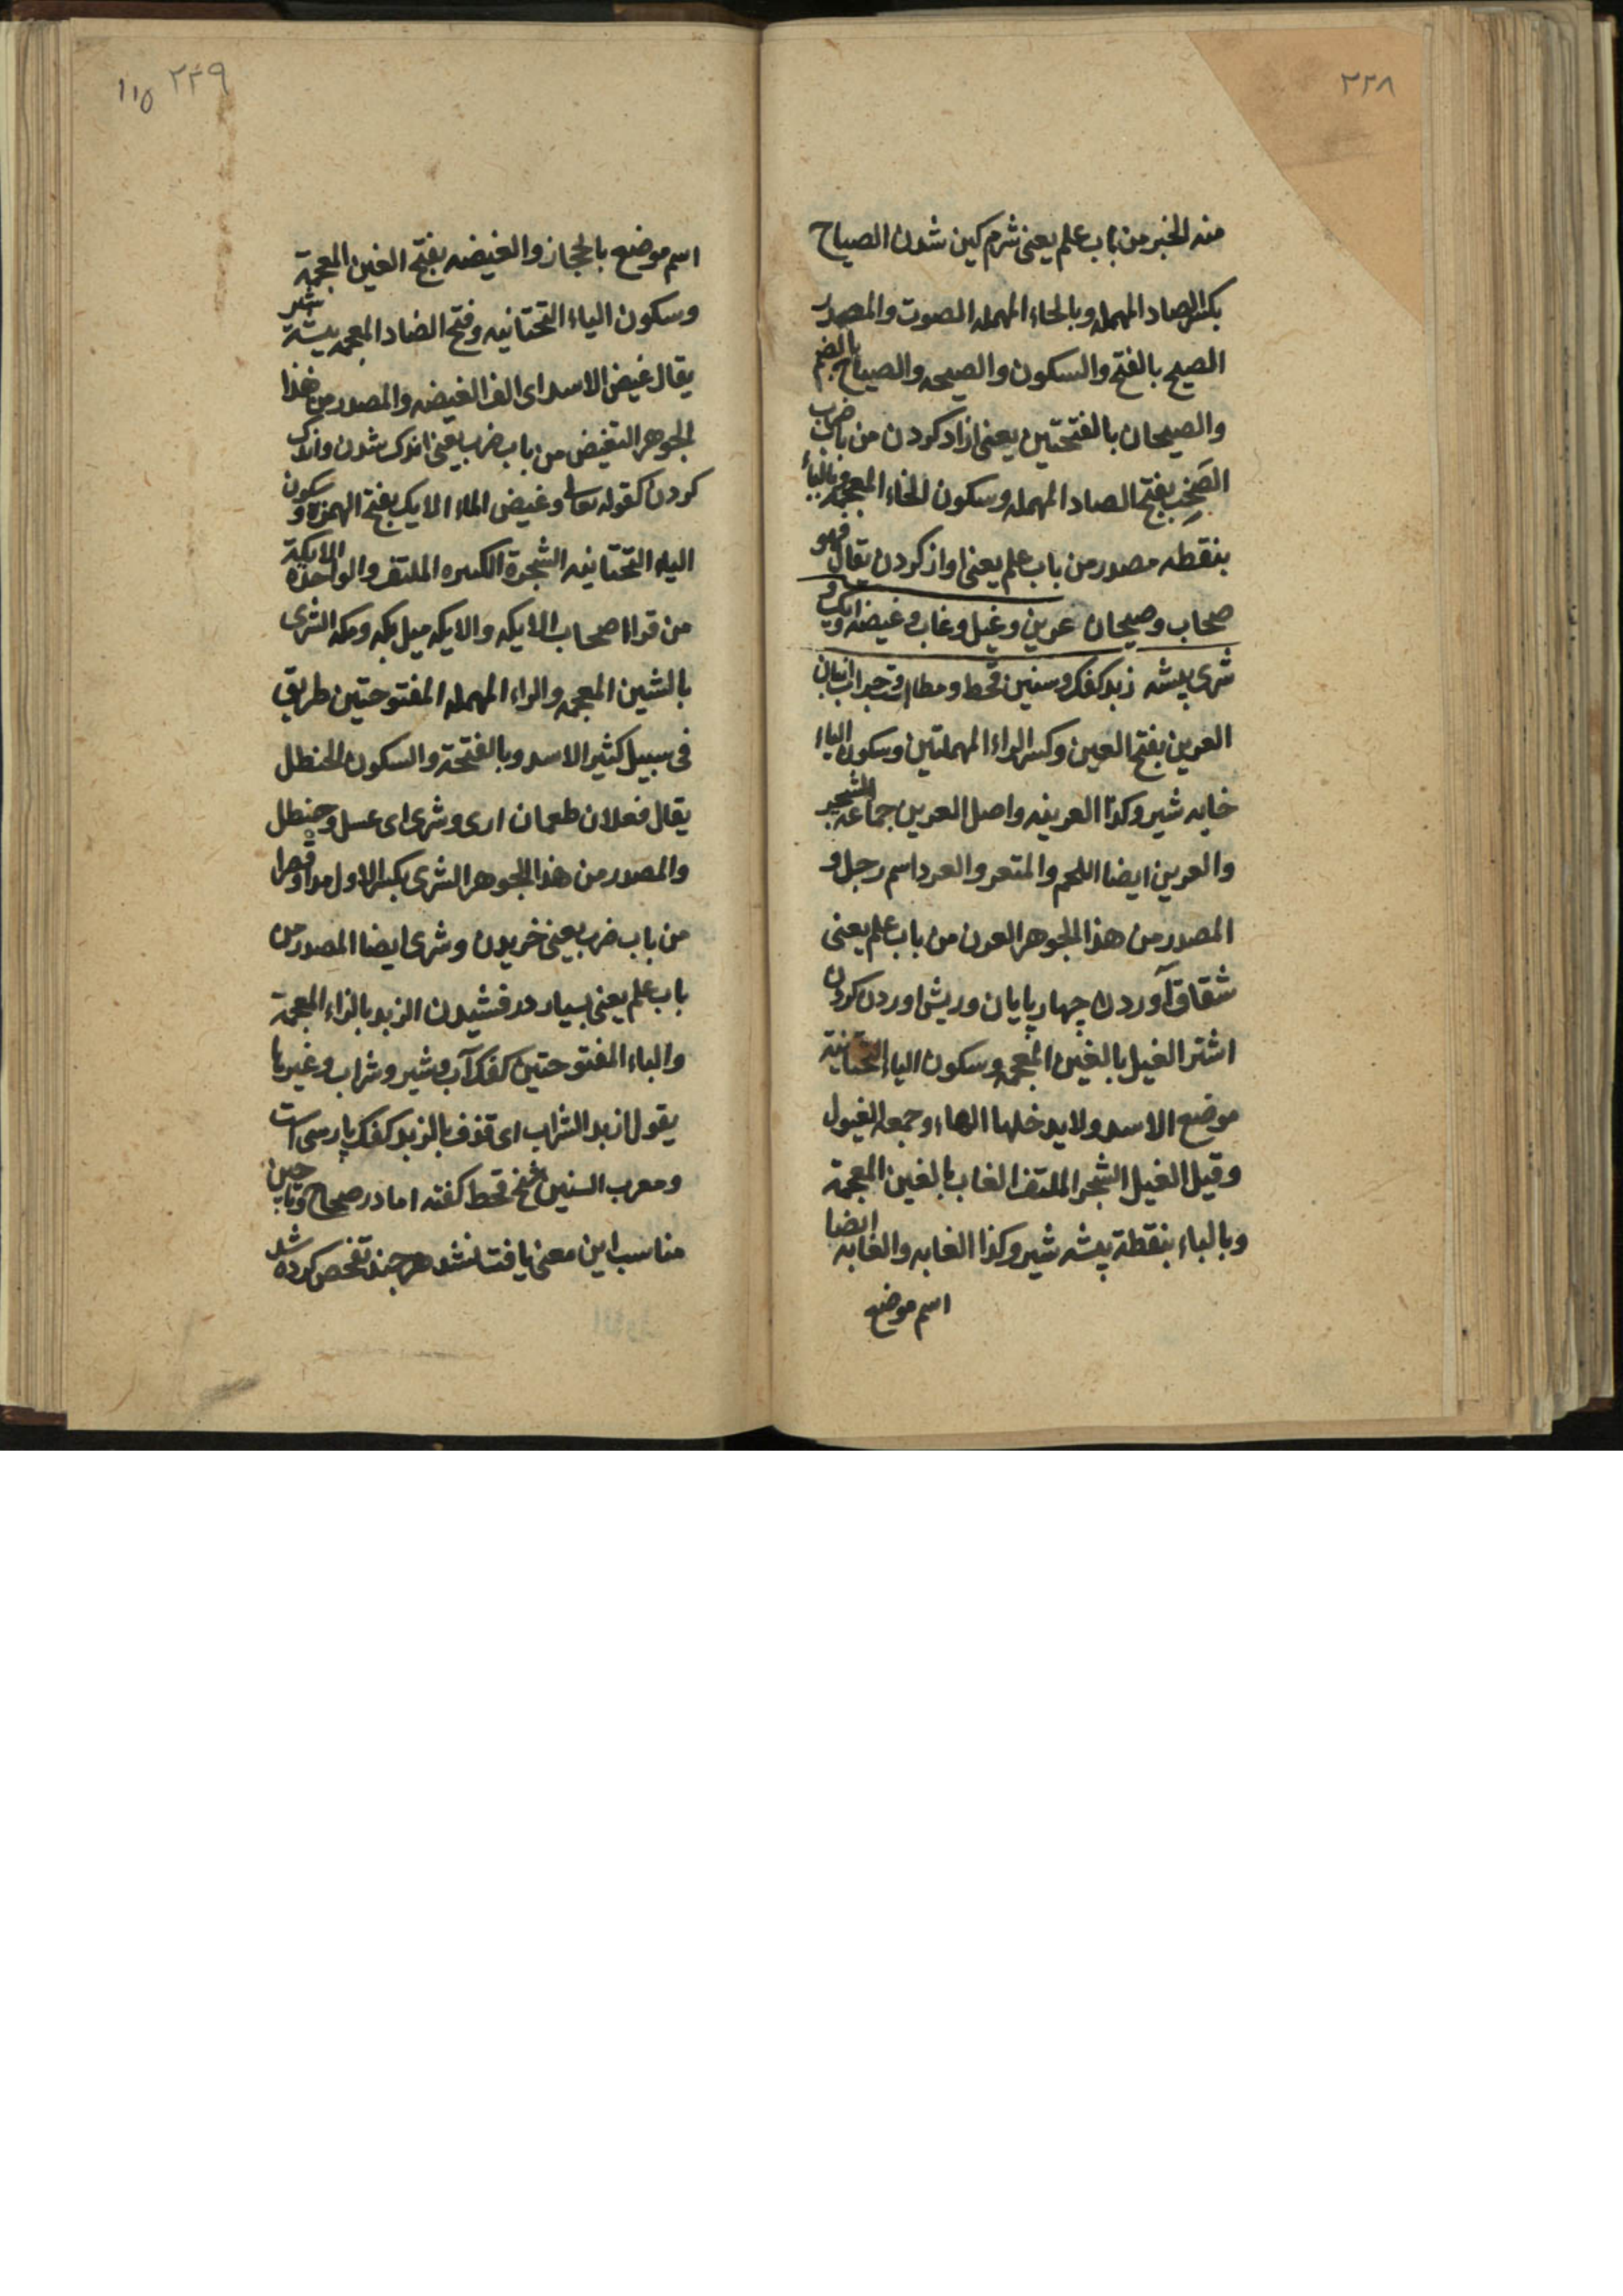 ٢٢٨
منه الخبر من باب علم یعنی شرم کین شدن الصیاح
بکسر الصاد المهمله وبالحاء المهمله الصوت والمصدر
الصیح بالفتح والسکون والصیحه والصیاح بالضم
والصیحان بالفتحتین یعنی ازاد کردن من باب ضرب
الصَخِب بفتح الصاد المهمله وسکون الخاء المعجمه وبالباء
بنقطه مصدر من باب علم یعنی اواز کردن یقال فهو
صخاب وصیحان عرین وغیل وغاب وغیضه وایک و
شری بیشه زبد کفک وسنین قحط ومطار
العرین بفتح العین وکسر الراء المهملتین وسکون الیاء
خایه شیر وکذا العرینه واصل العرین جماعه الشجر
والعرین ایضا اللحم والمتعر والعرد اسم رجل و
المصدر من هذا الجوهر العرن من باب علم یعنی
شقاق آوردن چهار پایان وریش اوردن کردن
اشتر الغیل بالغین المعجمه وسکون الیاء التحتانیة
موضع الاسد ولا یدخلها الهاء وجمعه الغیول
وقیل الغیل الشجر الملتف الغاب بالغین المعجمة
وبالباء بنقطة بیشه شیر وکذا الغابه والغابه ایضا
اسم موضع
٢٢٩ ١١٥
اسم موضع بالحجاز والغیضه بفتح الغین المعجمة
وسکون الیاء التحتانیه وفتح الضاد المعجمه بیشة شیر
یقال غیض الاسد ای الف الغیضه والمصدر من هذا
الجوهر التغیض من باب ضرب یعنی اندک شدن واندک
کردن کقوله تعالی وغیض الماء الایک بفتح الهمزة وسکون
الیاء التحتانیه الشجرة الکثیره الملتف والواحدة الایکة
من قرا اصحاب الایکه والایکه میل بکه ومکه الشری
بالشین المعجمه والراء المهمله المفتوحتین طریق
فی سبیل کثیر الاسد وبالفتحة والسکون الحنظل
یقال فعلان طعمان اری وشری ای عسل وحنظل
والمصدر من هذا الجوهر الشری بکسر الاول مدا وقصرا
من باب ضرب یعنی خریدن وشری ایضا المصدر من
باب علم یعنی بسیار درفشیدن الزبد بالزاء المعجمة
والباء المفتوحتین کفک آب وشیر وشراب وغیرها
یقول ازبد الشراب ای قذف بالزبد کفک پارسی است
ومعرب السنین قحط کفته اما در صحاح وتاجین
مناسب این معنی یافته نشد هر چند تفحص کرده شد